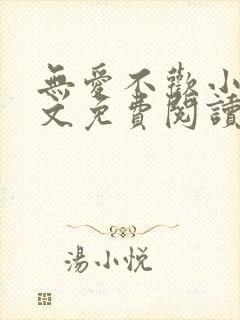 無愛不歡小
文免費閱讀
湯小悦